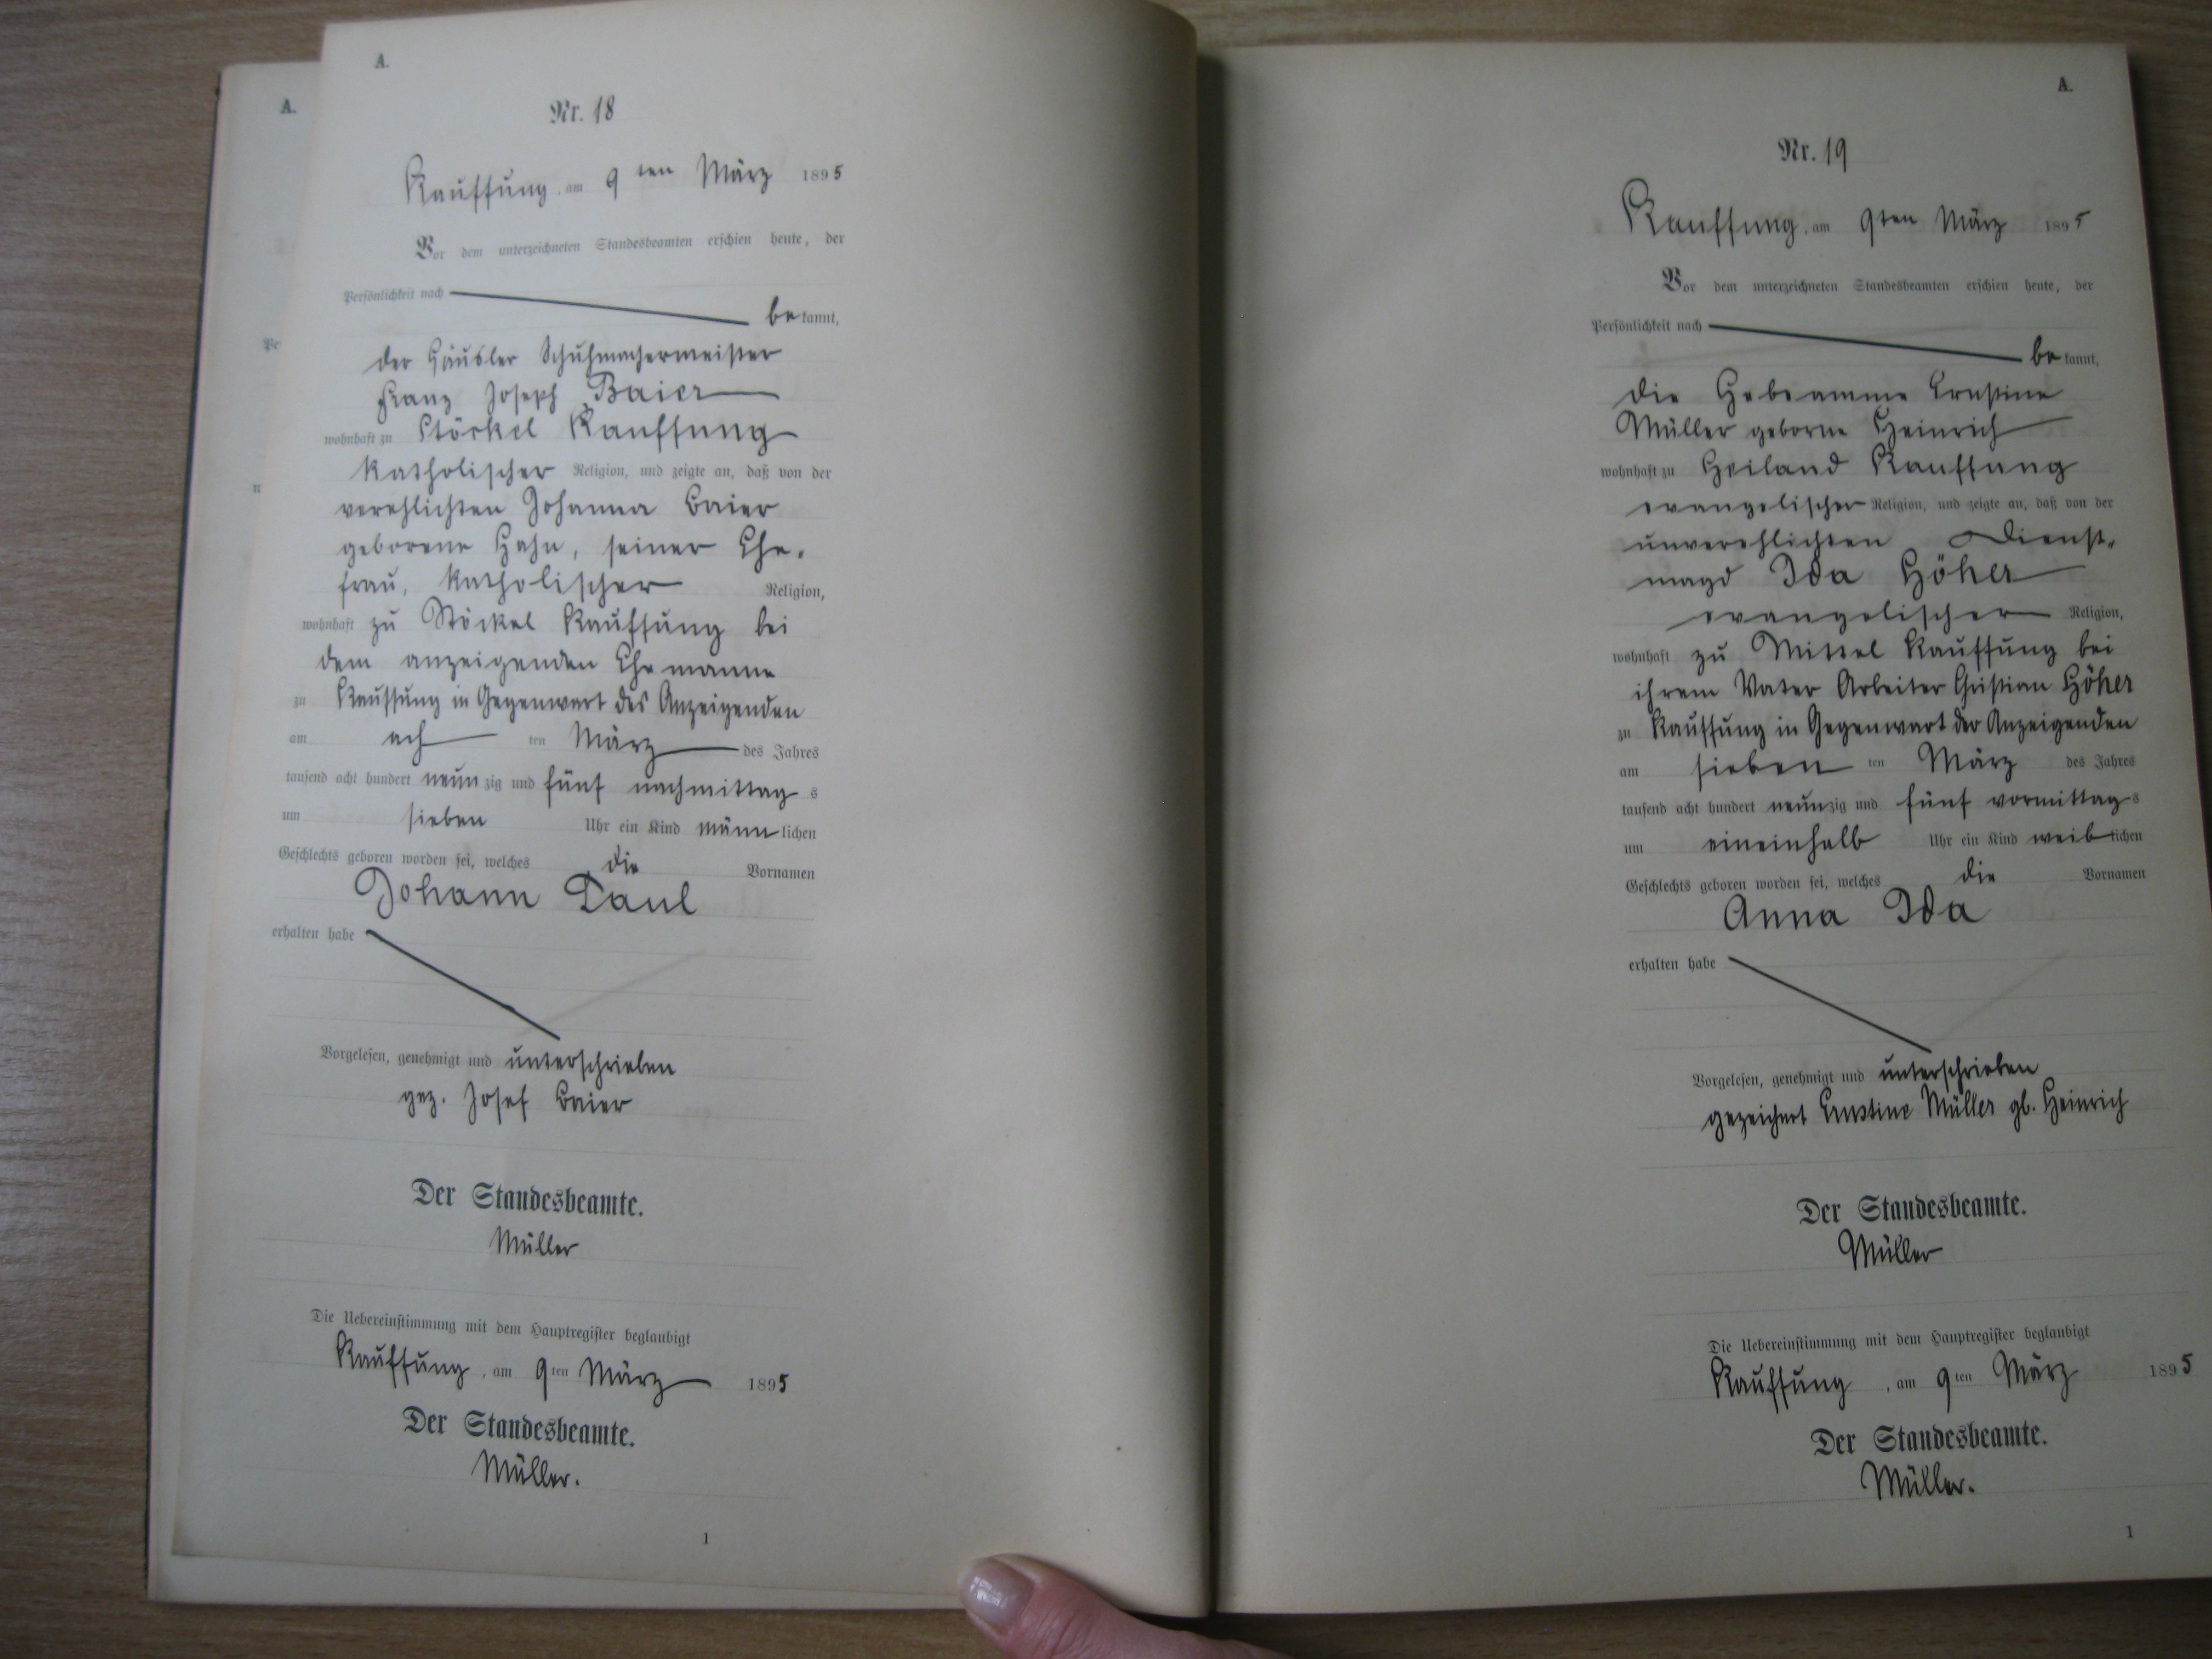 A.
A.
Nr. 18
Kauffung, am 9 ten März 1895
Vor dem unterzeichneten Standesbeamten erschien heute, der
Persönlichkeit nach
bekannt,
der Häusler Schuhmachermeister
Franz Joseph Baier
wohnhaft zu Stöckel Kauffung
katholischer Religion, und zeigte an, daß von der
verehlichten Johanna Baier
geborene Hahn, seiner Ehe-
frau, katholischer Religion,
wohnhaft zu Stöckel Kauffung bei
dem anzeigenden Ehemanne
zu Kauffung in Gegenwart des Anzeigenden
am ach ten März des Jahres
tausend acht hundert neunzig und fünf nachmittags
um sieben Uhr ein Kind männlichen
Geschlechts geboren worden sei, welches die Vornamen
Johann Paul
erhalten habe
Vorgelesen, genehmigt und unterschrieben
gez. Josef Baier
Der Standesbeamte.
Müller
Die Uebereinstimmung mit dem Hauptregister beglaubigt
Kauffung, am 9ten März 1895
Der Standesbeamte.
Müller.
1
A.
Nr. 19
Kauffung, am 9ten März 1895
Vor dem unterzeichneten Standesbeamten erschien heute, der
Persönlichkeit nach
bekannt,
die Hebeamme Ernstine
Müller geborne Heinrich
wohnhaft zu Heiland Kauffung
evangelischer Religion, und zeigte an, daß von der
unverehlichten Dienst-
magd Ida Höher
evangelischer Religion,
wohnhaft zu Mittel Kauffung bei
ihrem Vater Arbeiter Christian Höher
zu Kauffung in Gegenwart der Anzeigenden
am sieben ten März des Jahres
tausend acht hundert neunzig und fünf vormittags
um eineinhalb Uhr ein Kind weiblichen
Geschlechts geboren worden sei, welches die Vornamen
Anna Ida
erhalten habe
Vorgelesen, genehmigt und unterschrieben
gezeichnet Ernstine Müller gb. Heinrich
Der Standesbeamte.
Müller
Die Uebereinstimmung mit dem Hauptregister beglaubigt
Kauffung, am 9ten März 1895
Der Standesbeamte.
Müller.
1